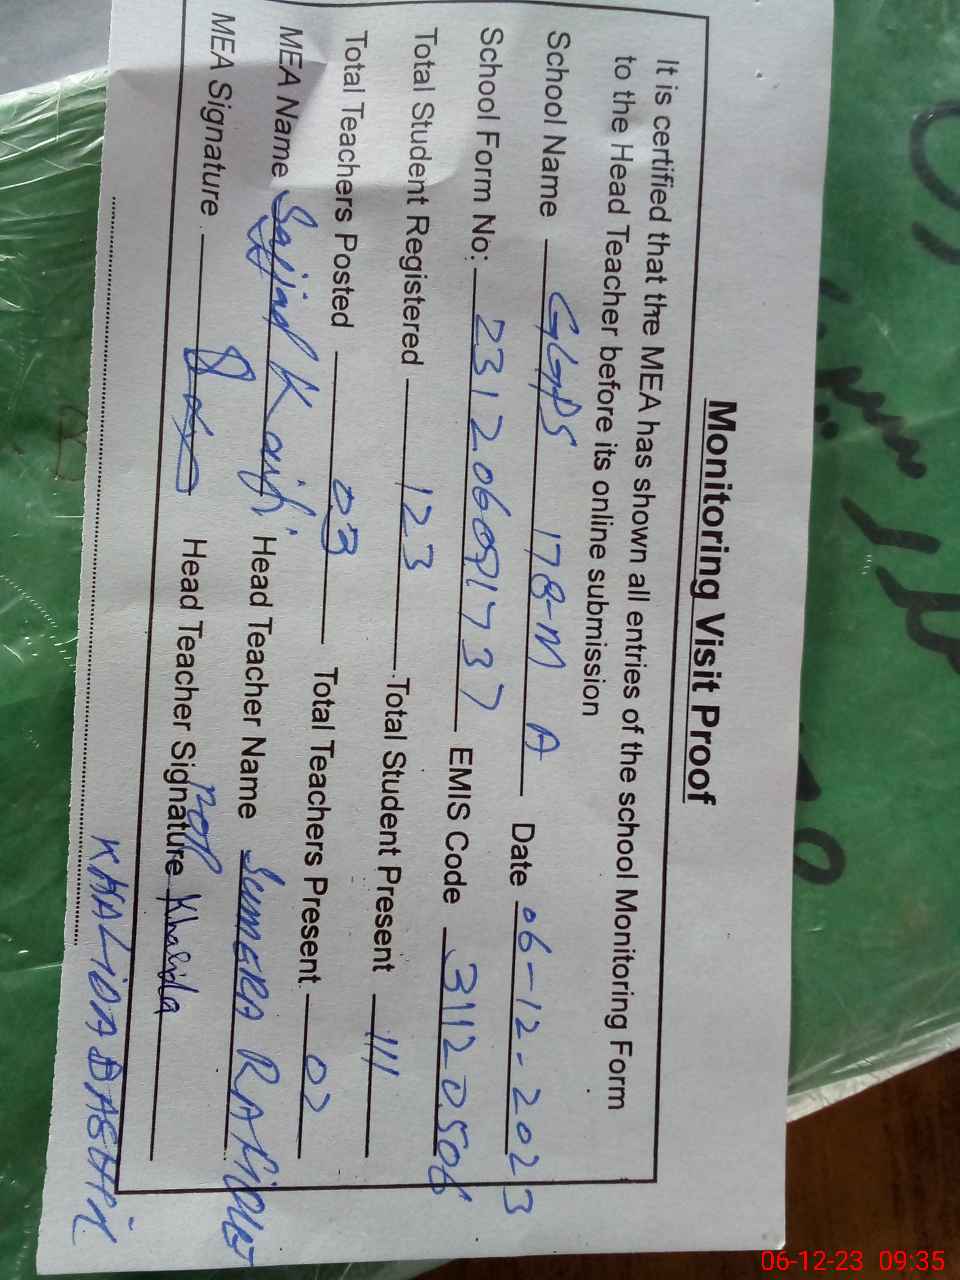 Monitoring Visit Proof
It is certified that the MEA has shown all entries of the school Monitoring Form
to the Head Teacher before its online submission
School Name GGPS 178-M A Date 06-12-2023
School Form No: EMIS Code 31120506
Total Student Registered 123 Total Student Present 111
Total Teachers Posted 03 Total Teachers Present 02
MEA Name Sajjad Head Teacher Name SUMERA
MEA Signature Head Teacher Signature Khalida
KHALIDA BASHIR
06-12-23 09:35